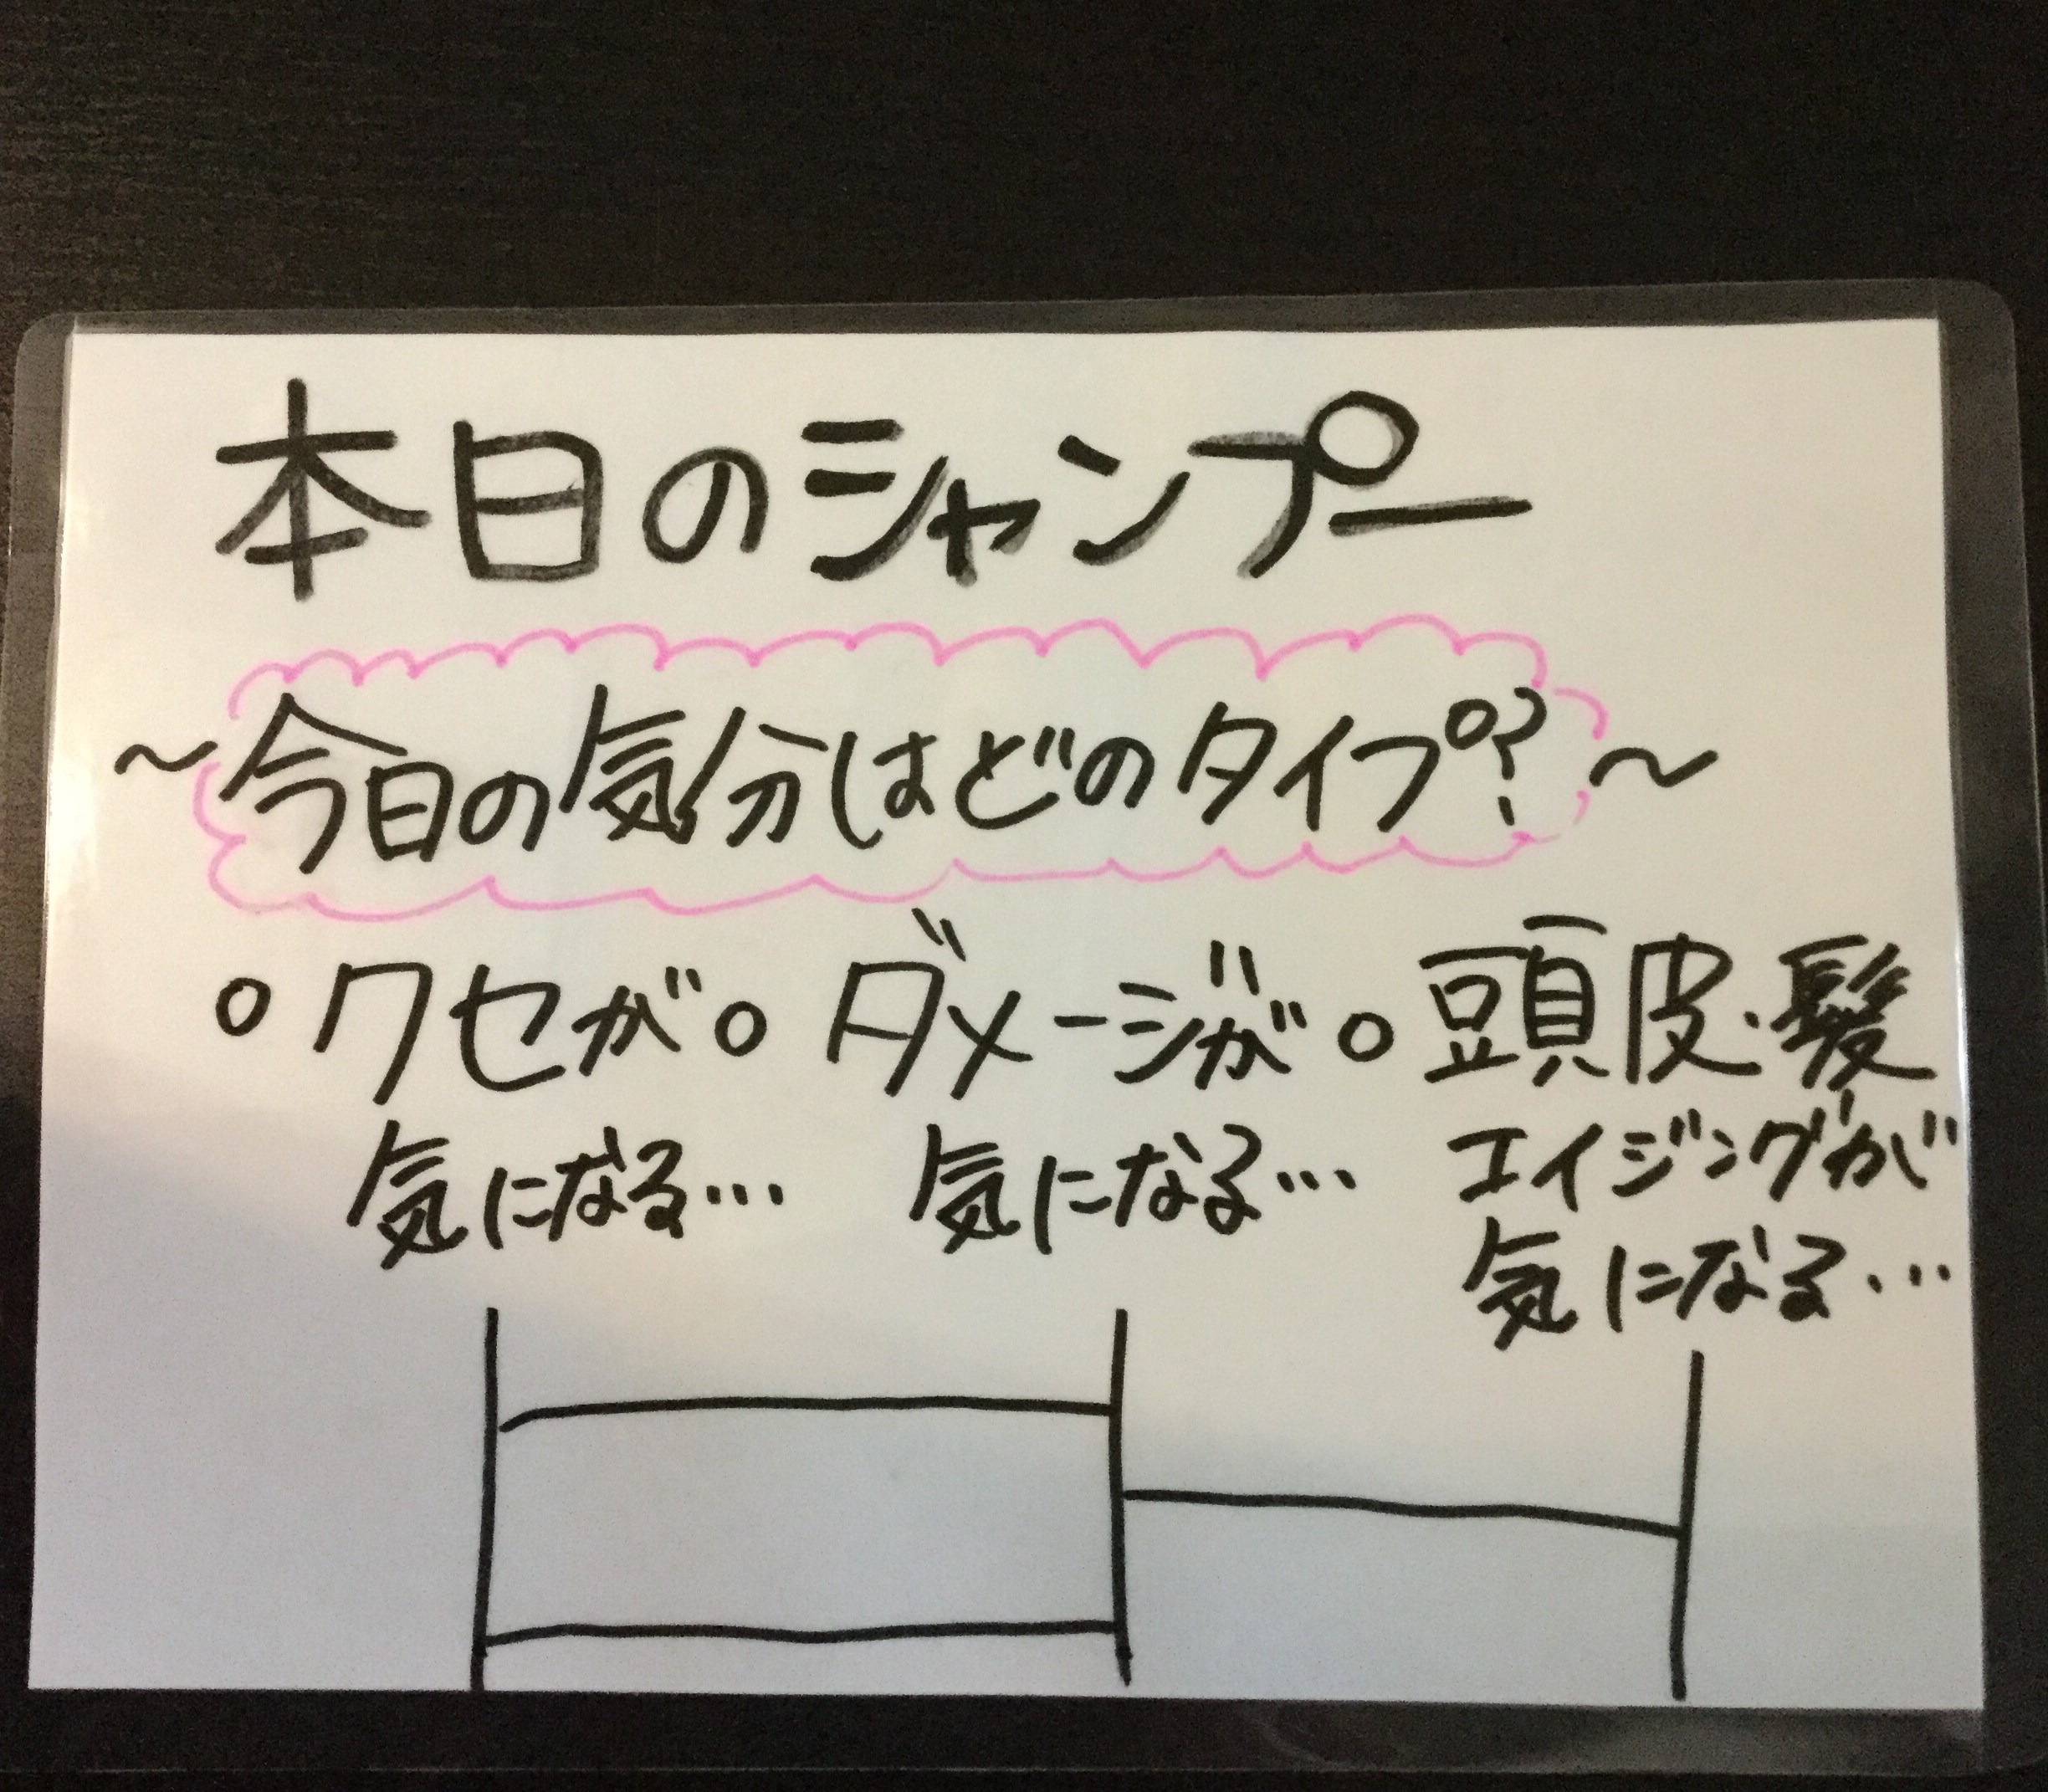 本日のシャンプー
～今日の気分はどのタイプ?～
○クセが
気になる…
○ダメージが
気になる…
○頭皮・髪
エイジングが
気になる…